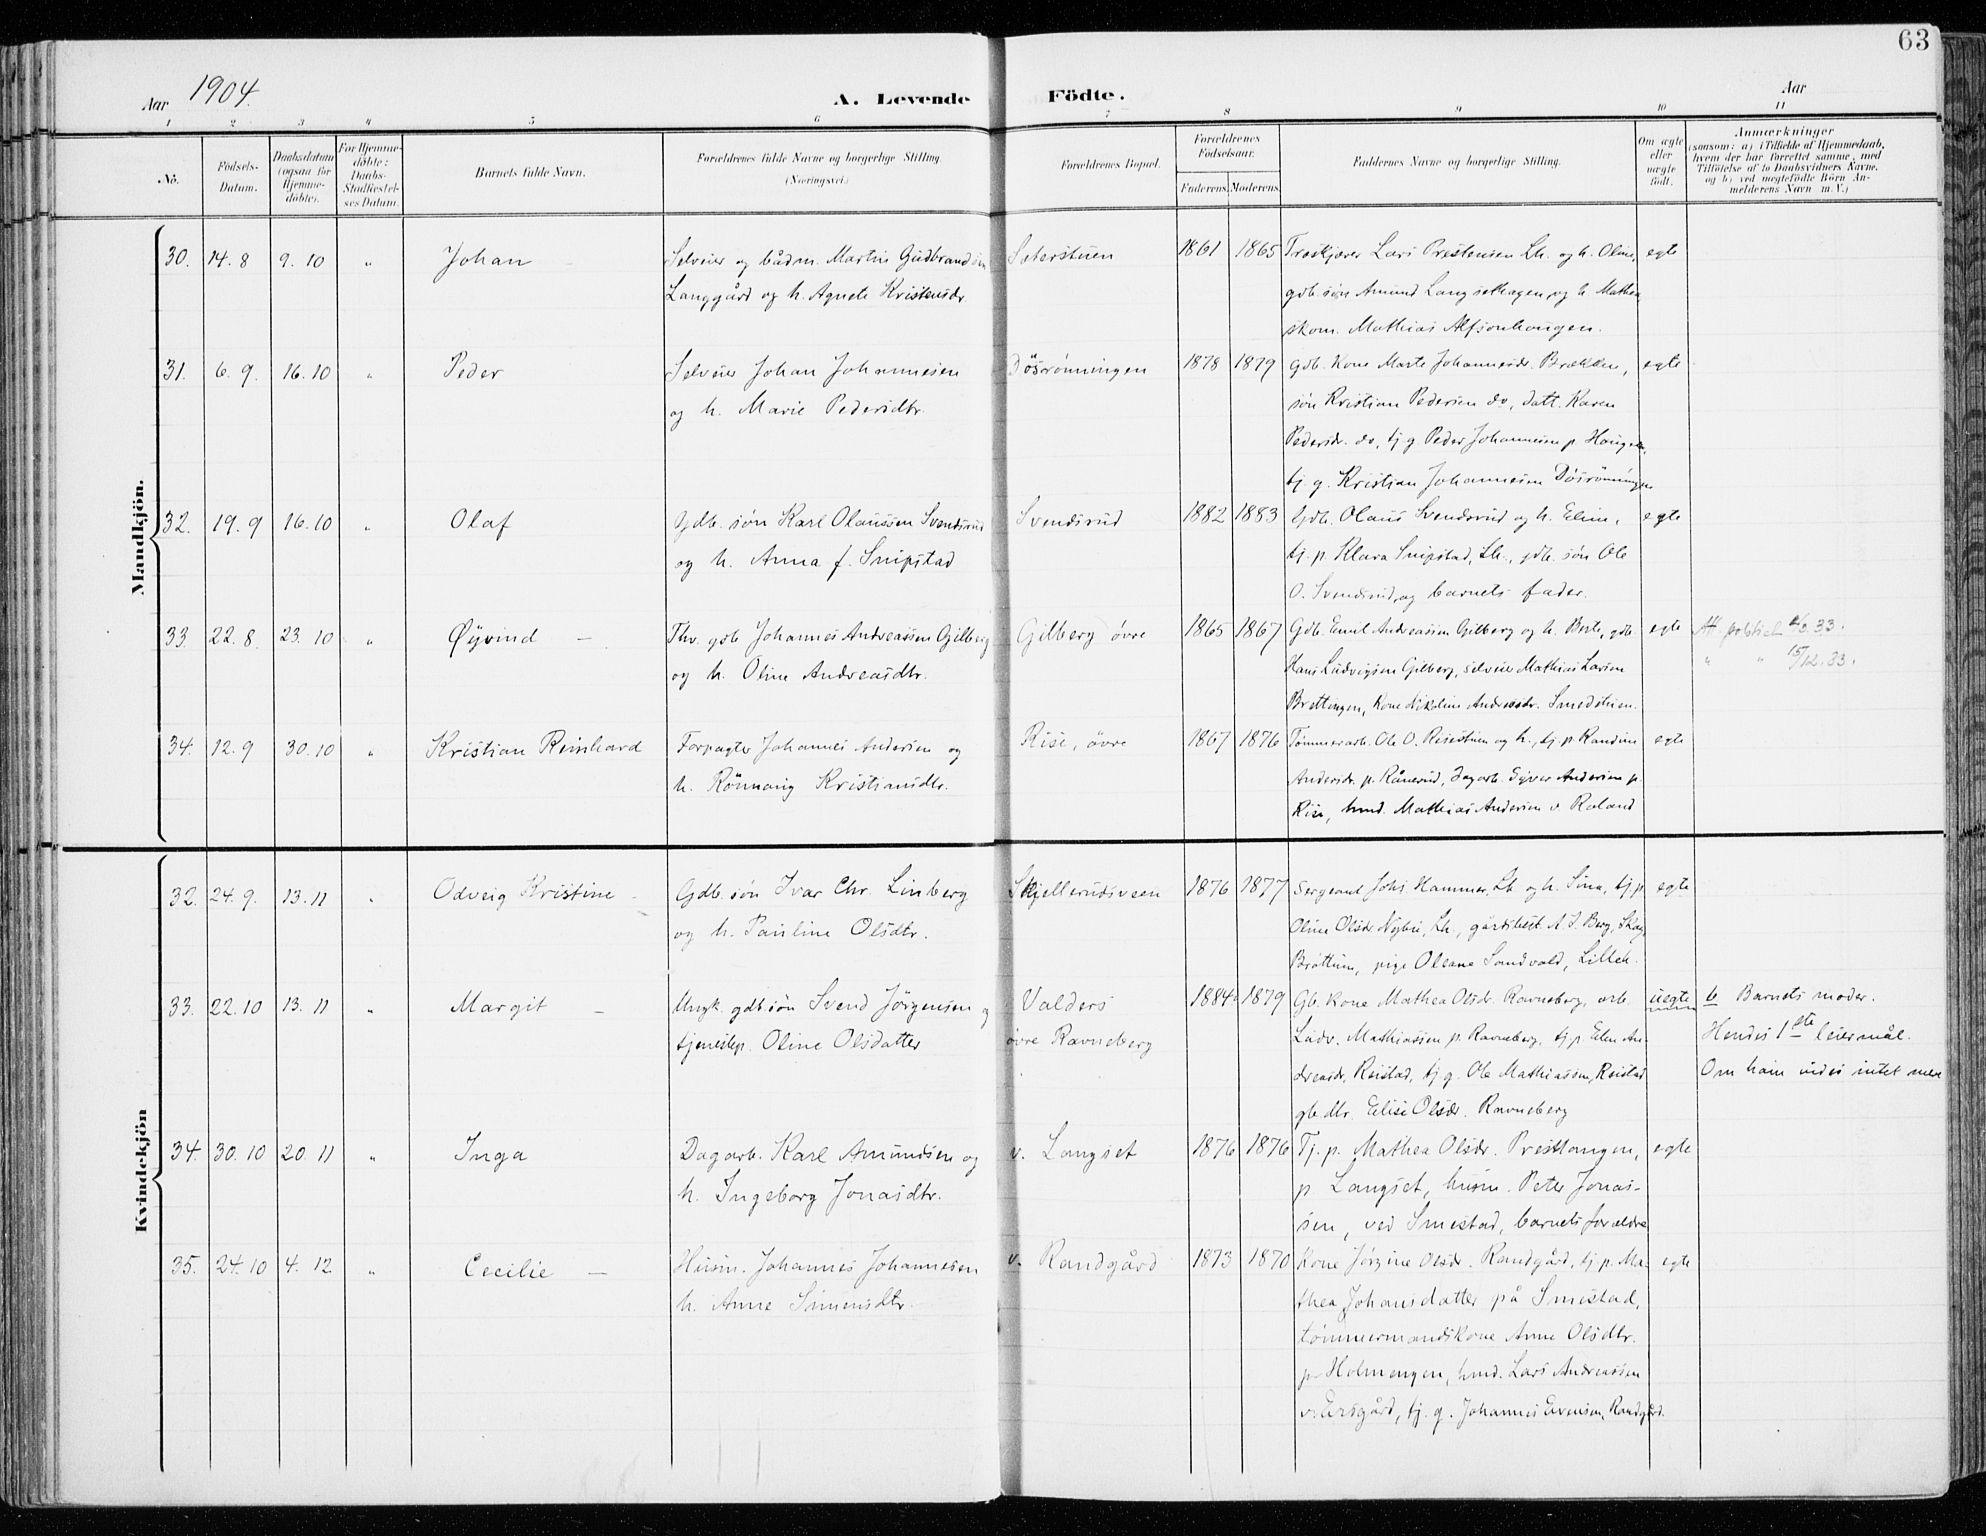 63
Aar 1904.
A. Levende Födte.
Aar
1 2 3 4 5 6 7 8 9 10 11
No.
Födsels-Datum.
Daabsdatum (ogsaa for Hjemme-döbte).
For Hjemme-döbte: Daabs-Stadfæstelses Datum.
Barnets fulde Navn.
Forældrenes fulde Navne og borgerlige Stilling. (Næringsvei.)
Forældrenes Bopæl.
Forældrenes Födselsaar.
Faderens. Moderens.
Faddernes Navne og borgerlige Stilling.
Om ægte eller uægte födt.
Anmærkninger
(saasom: a) i Tilfælde af Hjemmedaab,
hvem der har forrettet samme, med
Tilföielse af to Daabsvidners Navne,
og b) ved uægtefödte Börn An-
melderens Navn m. V.)
Mandkjön.
30. 14.8 9.10 " Johan
Selveier og bådm. Martin Gudbrandsen
Langgård og h. Agnete Kristensdr.
Sæterstuen 1861 1865
Træskjærer Lars Prestensen Lh. og h. Oline,
gdb. søn Amund Langsethagen og h Mathea
skom. Mathias Alfsonhaugen.
egte
31. 6.9. 16.10 " Peder
Selveier Johan Johannesen
og h. Marie Pedersdtr.
Dösrönningen 1878 1879
Gdb. Kone Marte Johannesdr. Brækken,
søn Kristian Pedersen do, datt. Karen
Pedersdr. do, tj g Peder Johannesen p Haugen,
tj. g. Kristian Johannesen Dösrönningen
egte
32. 19.9 16.10 " Olaf
Gdb. søn Karl Olaussen Svendsrud
og h. Anna f. Snipstad
Svendsrud 1882 1883
Gdb. Olaus Svendsrud og h. Elin,
tj. p. Klara Snipstad, Lh., gdb. søn Ole
O. Svendsrud, og barnets fader.
egte
33. 22.8. 23.10 " Øyvind
Fhv. gdb Johannes Andreassen Gilberg
og h. Oline Andreasdtr.
Gilberg øvre 1865 1867
Gdb. Emil Andreassen Gilberg og h. Berte, gdb.
Hans Ludvigsen Gilberg, selveier Mathias Larsen
Brettingen, Kone Nikoline Andreasdr. Smedstuen.
egte
Att. 33.
" " 15/12.33.
34. 12.9 30.10 " Kristian Reinhard
Forpagter Johannes Andersen og
h. Rönnaug Kristiansdtr.
Rise, øvre 1867 1876
Tømmerarb. Ole O. Risestuen og h., tj. p Randine
Andersdr. p. Rånerud, dagarb. Syver Andersen p.
Rise, hmd. Mathias Andersen v Roland
egte
Kvindekjön
32. 24.9. 13.11 " Odveig Kristine
Gdb. søn Ivar Chr. Linberg
og h. Pauline Olsdtr.
Skjellerudsveen 1876 1877
Sergeant Johs Hammer, Lh. og h. Sina, tj. p.
Oline Olsdr Nybu, Lh., gårdsbest. A. S. Berg,
Brøttum, pige Oleane Sandvold, Lilleh.
egte
33. 22.10 13.11 " Margit
Ungk. gdb. søn Svend Jørgensen og
tjenestep. Oline Olsdatter
Valders
øvre Ravneberg
1884 1879
Gb. kone Mathea Olsdr. Ravneberg, arb.
Ludv. Mathiassen p. Ravneberg, tj. p. Elen An-
dreasdr, Reistad, tj g. Ole Mathiassen, Reistad
gb. dtr. Elise Olsdr. Ravneberg
uegte
b Barnets moder.
Hendes 1ste leiermål.
Om ham vides intet mere
34. 30.10 20.11 " Inga
Dagarb. Karl Amundsen og
h. Ingeborg Jonasdtr.
v. Langset 1876 1876
Tj. p. Mathea Olsdr. Prestlangen,
p Langset, husm. Peter Jonas-
sen, ved Smestad, barnets forældre
egte
35. 24.10 4.12. " Cecilie
Husm. Johannes Johannesen
h. Anne Simensdtr.
v. Randgård 1873 1870
Kone Jørgine Olsdr. Randgård, tj. p. Ma-
thea Johansdatter på Smestad,
tømmermandskone Anne Olsdtr.
p Holmengen, hmd. Lars Andreassen
v. Ersgård, tj. g. Johannes Evensen, Randgård.
egte